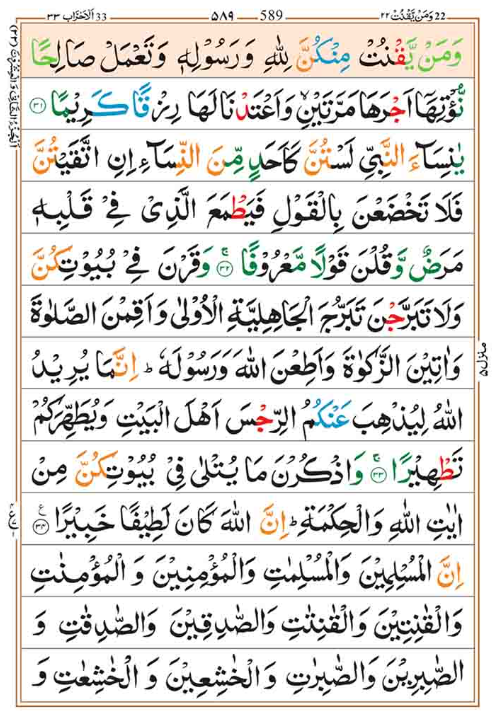 اَلْاَحْزَاب 33 ٣٣ ٥٨٩ 589 وَمَنْ يَّقْنُتْ ٢٢ 22
وَمَنْ يَّقْنُتْ مِنْكُنَّ لِلّٰهِ وَرَسُوْلِهٖ وَتَعْمَلْ صَالِحًا
نُّؤْتِهَاۤ اَجْرَهَا مَرَّتَيْنِۙ وَاَعْتَدْنَا لَهَا رِزْقًا كَرِيْمًا ﴿۳۱﴾
يٰنِسَآءَ النَّبِيِّ لَسْتُنَّ كَاَحَدٍ مِّنَ النِّسَآءِ اِنِ اتَّقَيْتُنَّ
فَلَا تَخْضَعْنَ بِالْقَوْلِ فَيَطْمَعَ الَّذِيْ فِيْ قَلْبِهٖ
مَرَضٌ وَّقُلْنَ قَوْلًا مَّعْرُوْفًا ﴿۳۲﴾ۚ وَقَرْنَ فِيْ بُيُوْتِكُنَّ
وَلَا تَبَرَّجْنَ تَبَرُّجَ الْجَاهِلِيَّةِ الْاُوْلٰى وَاَقِمْنَ الصَّلٰوةَ
وَاٰتِيْنَ الزَّكٰوةَ وَاَطِعْنَ اللّٰهَ وَرَسُوْلَهٗ ؕ اِنَّمَا يُرِيْدُ
اللّٰهُ لِيُذْهِبَ عَنْكُمُ الرِّجْسَ اَهْلَ الْبَيْتِ وَيُطَهِّرَكُمْ
تَطْهِيْرًا ﴿۳۳﴾ۚ وَاذْكُرْنَ مَا يُتْلٰى فِيْ بُيُوْتِكُنَّ مِنْ
اٰيٰتِ اللّٰهِ وَالْحِكْمَةِ ؕ اِنَّ اللّٰهَ كَانَ لَطِيْفًا خَبِيْرًا ﴿۳۴﴾
اِنَّ الْمُسْلِمِيْنَ وَالْمُسْلِمٰتِ وَالْمُؤْمِنِيْنَ وَ الْمُؤْمِنٰتِ
وَالْقٰنِتِيْنَ وَالْقٰنِتٰتِ وَالصّٰدِقِيْنَ وَالصّٰدِقٰتِ وَ
الصّٰبِرِيْنَ وَالصّٰبِرٰتِ وَ الْخٰشِعِيْنَ وَ الْخٰشِعٰتِ وَ
منزل ٥